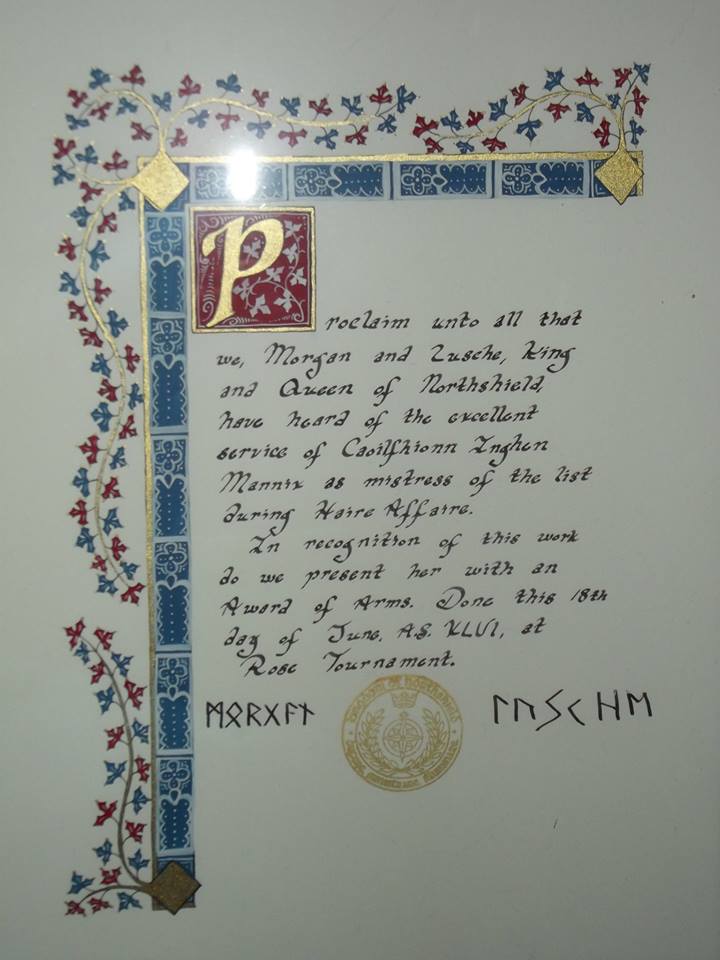 Proclaim unto all that
we, Morgan and Lusche, King
and Queen of Northshield,
have heard of the excellent
service of Caoilfhionn Inghen
Mannix as mistress of the list
during Haire Affaire.
In recognition of this work
do we present her with an
Award of Arms. Done this 18th
day of June, A.S. XLVI, at
Rose Tournament.
ᛗᛟᚱᚷᚨᚾ
ᛚᚢᛊᚲᚺᛖ
Kingdom of Northshield